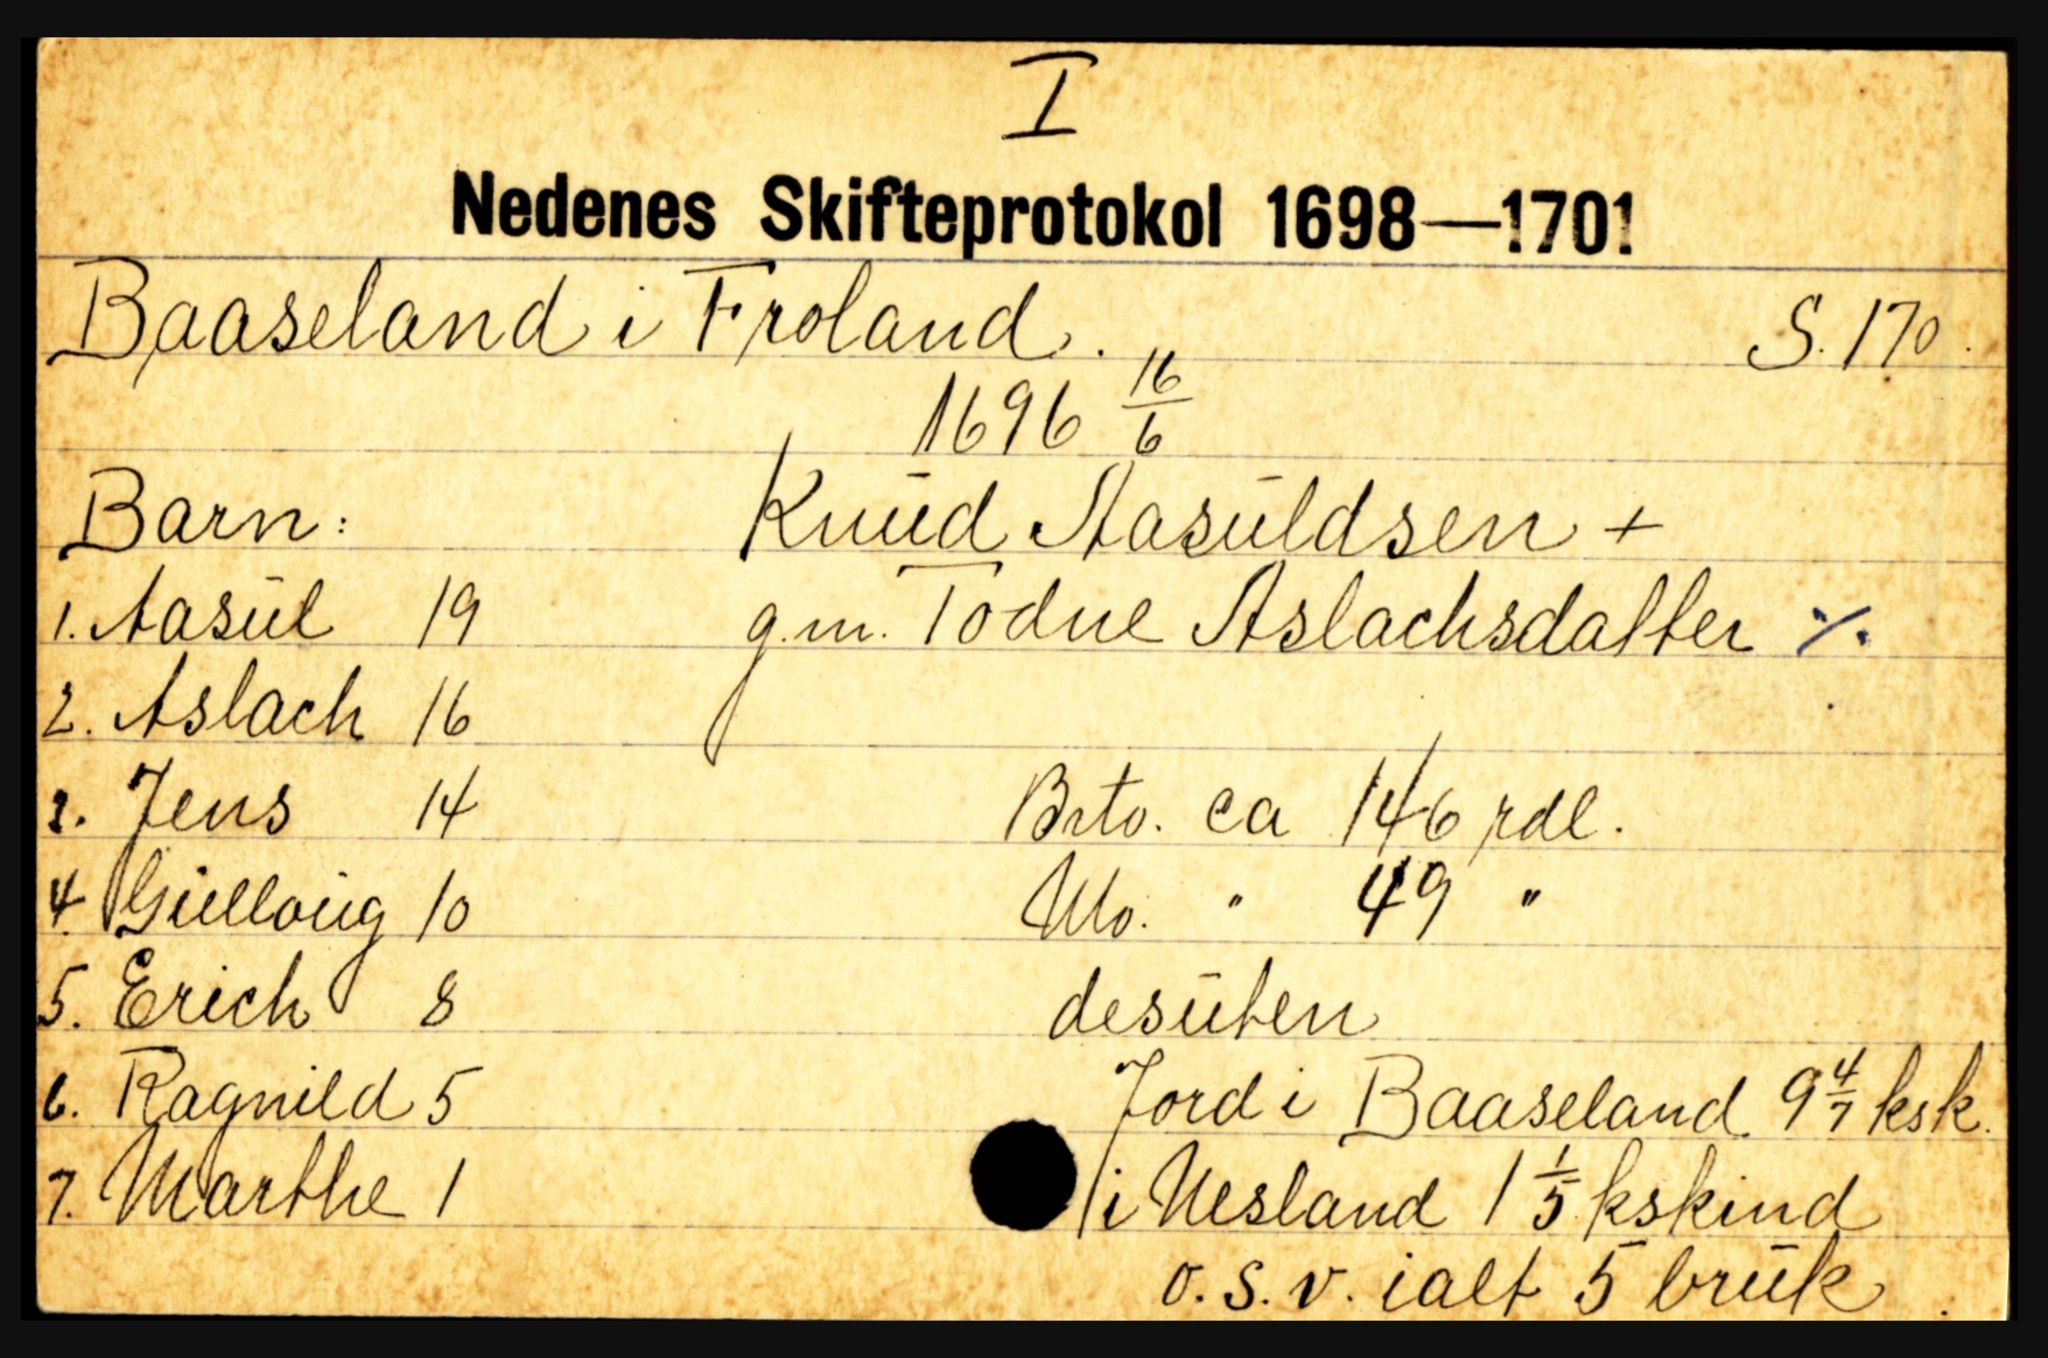 I
Nedenes Skifteprotokol 1698—1701
Baaseland i Froland. S. 170.
1696 16/6
Barn: Knud Aasuldsen +
1. Aasul 19 g.m. Todne Aslachsdatter ./.
2. Aslach 16
3. Jens 14 Brto. ca 146 rdl.
4. Gullaug 10 Nto. " 49 "
5. Erich 8 desuten
6. Ragnild 5 Jord i Baaseland 9 4/7 ksk.
7. Marthe 1 i Nesland 1 1/5 kskind
o.s.v. ialt 5 bruk